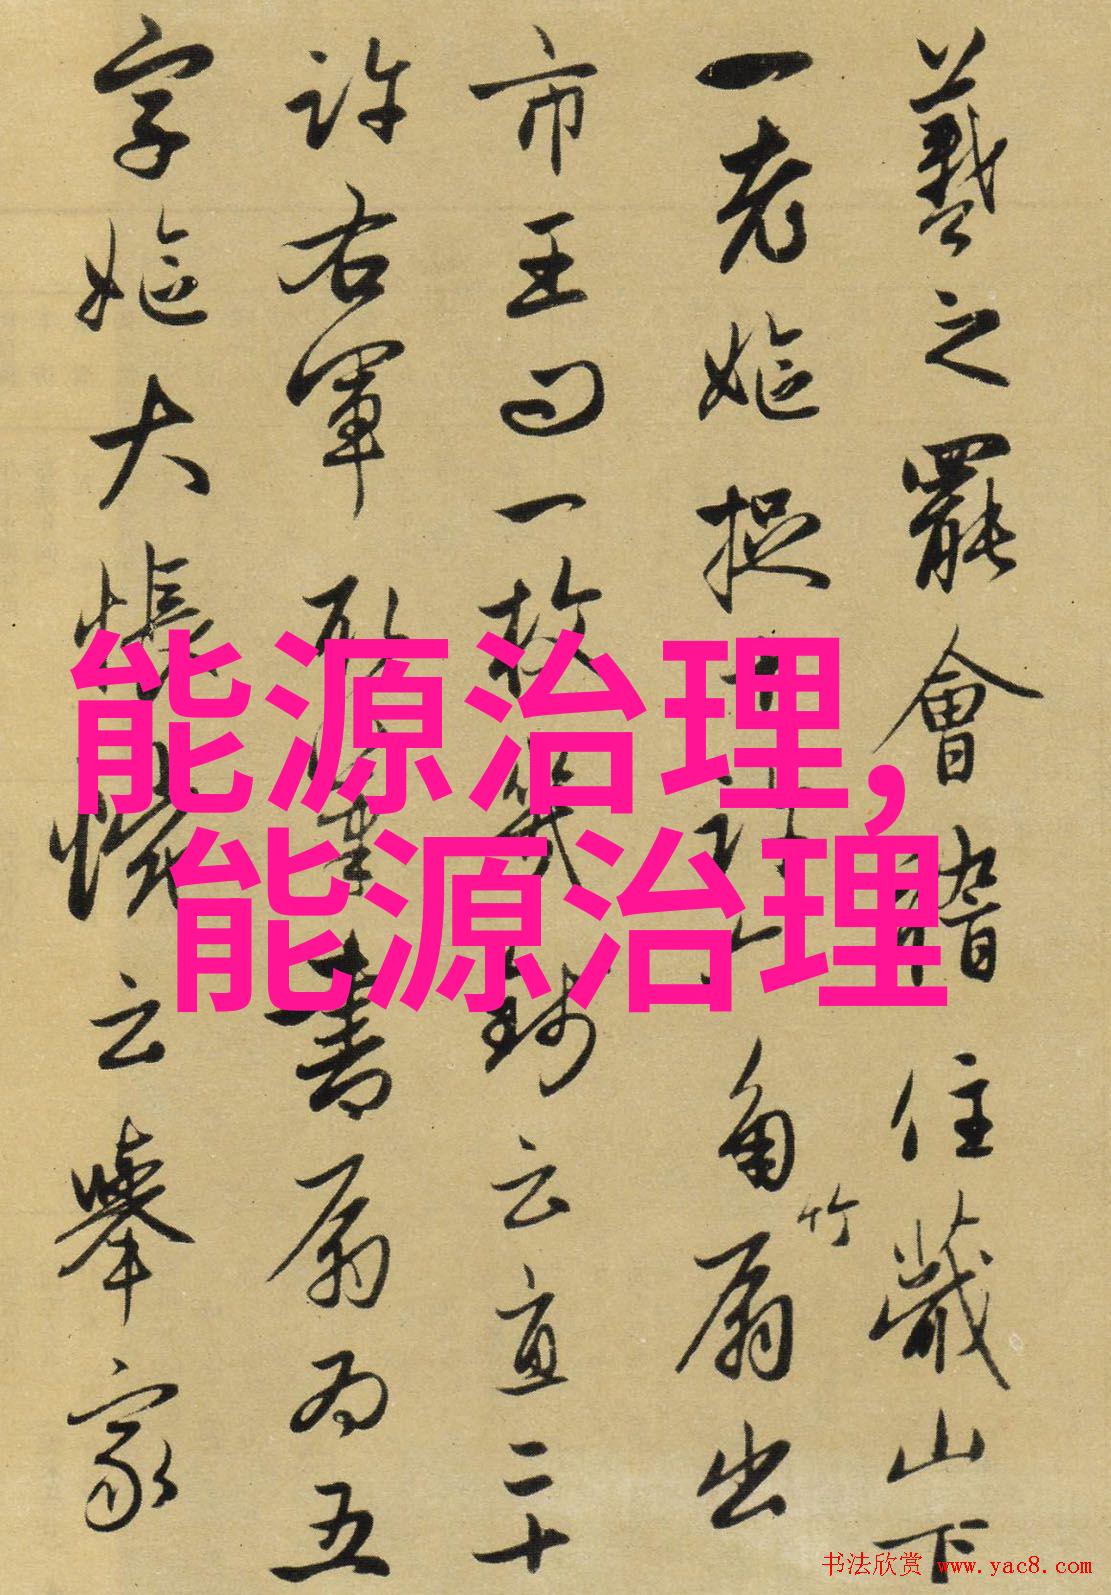 羲之罷會稽住蕺山下
一老嫗捉
角扇出
竹
市王問一枚幾
云直二十
許右軍
書扇為五
字嫗大悵惋云舉家
能源治理,
能源治理
书法欣赏 www.yac8.com